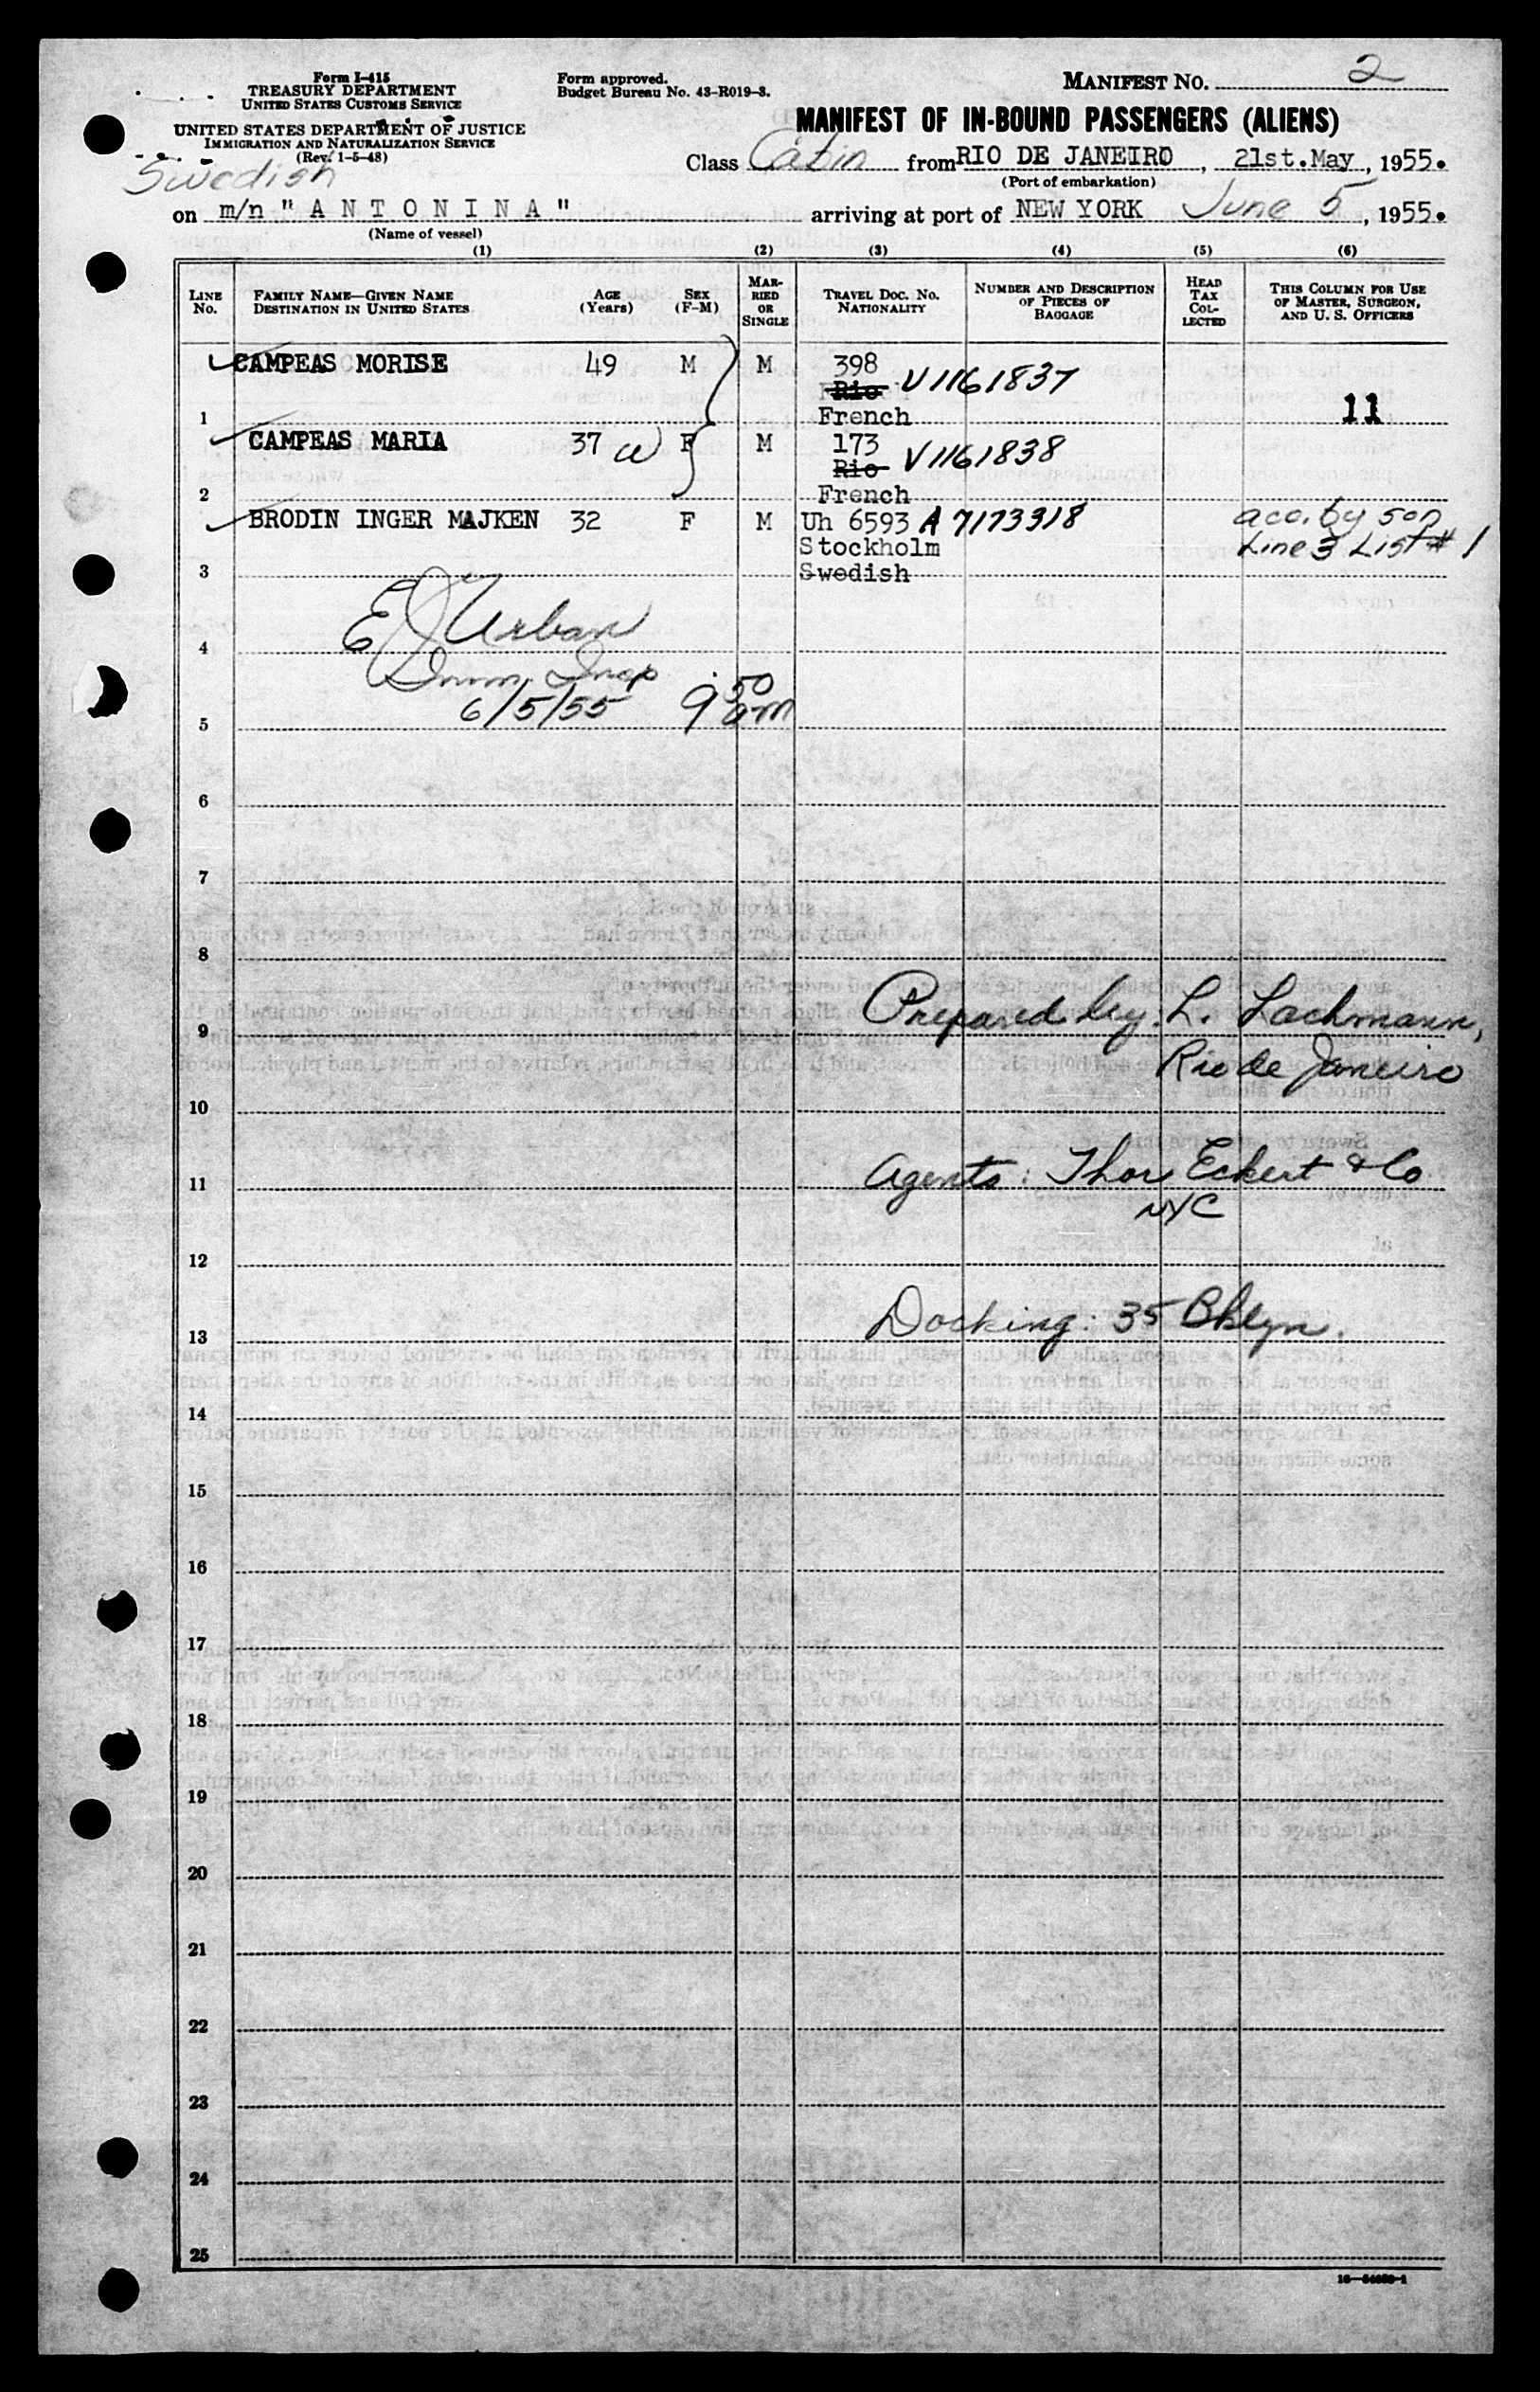 Form I-415
TREASURY DEPARTMENT
UNITED STATES CUSTOMS SERVICE
UNITED STATES DEPARTMENT OF JUSTICE
IMMIGRATION AND NATURALIZATION SERVICE
(Rev. 1-5-48)
Form approved.
Budget Bureau No. 43-R019-3.
MANIFEST NO. 2
MANIFEST OF IN-BOUND PASSENGERS (ALIENS)
Class Cabin from RIO DE JANEIRO, 21st.May, 1955.
(Port of embarkation)
Swedish
on m/n "ANTONINA" arriving at port of NEW YORK June 5, 1955.
(Name of vessel)
(1) (2) (3) (4) (5) (6)
LINE NO.
FAMILY NAME—GIVEN NAME
DESTINATION IN UNITED STATES
AGE (Years)
SEX (F-M)
MARRIED OR SINGLE
TRAVEL DOC. NO.
NATIONALITY
NUMBER AND DESCRIPTION OF PIECES OF BAGGAGE
HEAD TAX COLLECTED
THIS COLUMN FOR USE OF MASTER, SURGEON, AND U. S. OFFICERS
CAMPEAS MORISE 49 M M 398
Rio V1161837
1 French 11
CAMPEAS MARIA 37 W F M 173
Rio V1161838
2 French
BRODIN INGER MAJKEN 32 F M Uh 6593 A 7173318 acc. by son
Stockholm Line 3 List # 1
3 Swedish
E J Urban
4
Imm. Insp
6/5/55 9 50 am
5
6
7
8
Prepared by L. Lachmann,
9
Rio de Janeiro
10
Agents: Thor Eckert & Co
11
NYC
12
Docking: 35 Bklyn.
13
14
15
16
17
18
19
20
21
22
23
24
25